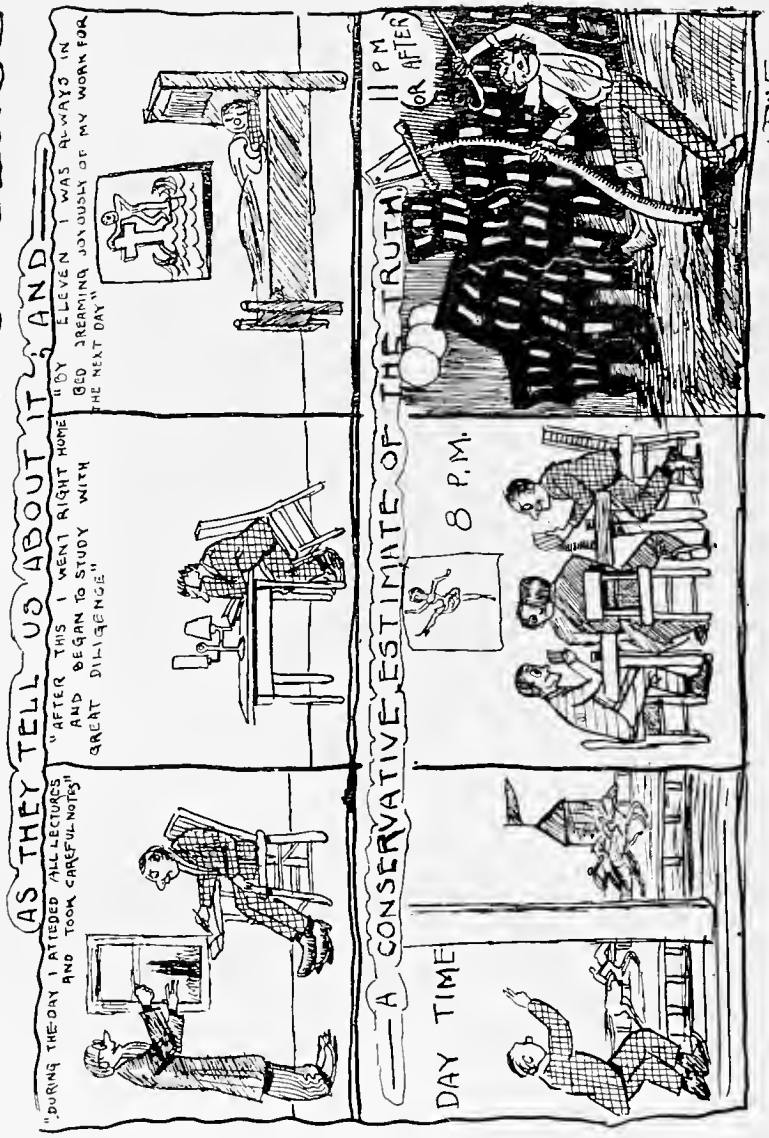 AS THEY TELL US ABOUT IT; AND
"DURING THE DAY I ATTEDED ALL LECTURES
AND TOOK CAREFUL NOTES"
"AFTER THIS I WENT RIGHT HOME
AND BEGAN TO STUDY WITH
GREAT DILIGENCE"
"BY ELEVEN I WAS ALWAYS IN
BED DREAMING JOYOUSLY OF MY WORK FOR
THE NEXT DAY"
A CONSERVATIVE ESTIMATE OF THE TRUTH.
DAY TIME
8 P.M.
11 PM
OR AFTER